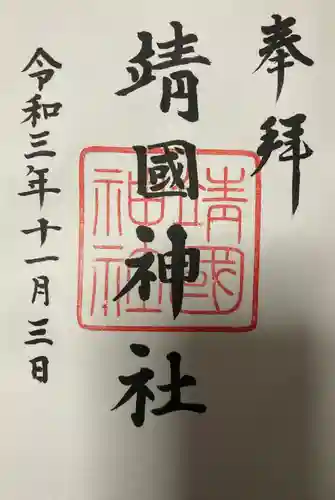 奉拝
靖國神社
靖國
神社
令和三年十一月三日